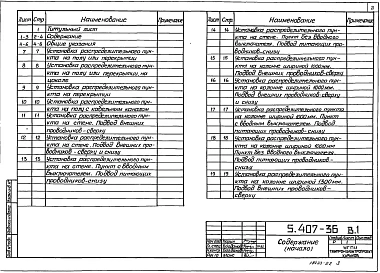 3
Лист Стр Наименование Примечание
1 Титульный лист
1-3 2-4 Содержание
4-6 5-6 Общие указания
7 7 Установка распределительного пункта на полу или перекрытии
8 8 Установка распределительного пункта на полу или перекрытии на цоколе
9 9 Установка распределительного пункта на перекрытии
10 10 Установка распределительного пункта на полу с кабельным каналом
11 11 Установка распределительного пункта на стене. Подвод внешних проводников-сверху
12 12 Установка распределительного пункта на стене. Подвод внешних проводников-сверху и снизу
13 13 Установка распределительного пункта на стене. Пункт с вводным выключателем. Подвод питающих проводников-снизу
Лист Стр Наименование Примечание
14 14 Установка распределительного пункта на стене. Пункт без вводного выключателя. Подвод питающих проводников-снизу
15 15 Установка распределительного пункта на колонне шириной 600мм. Подвод внешних проводников-сверху
16 16 Установка распределительного пункта на колонне шириной 600мм. Подвод внешних проводников сверху и снизу
17 17 Установка распределительного пункта на колонне шириной 600мм. Пункт с вводным выключателем. Подвод питающих проводников-снизу
18 18 Установка распределительного пункта на колонне шириной 1000мм. Пункт без вводного выключателя. Подвод питающих проводников-снизу
19 19 Установка распределительного пункта на колонне шириной 1300мм. Подвод внешних проводников-сверху
5.407-36 В.1
Содержание
(начало)